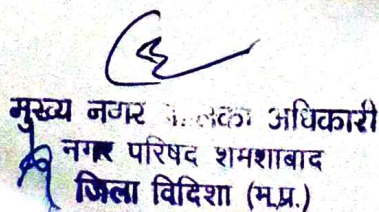 मुख्य नगर अधिकारी
नगर परिषद शमशाबाद
जिला विदिशा (म.प्र.)